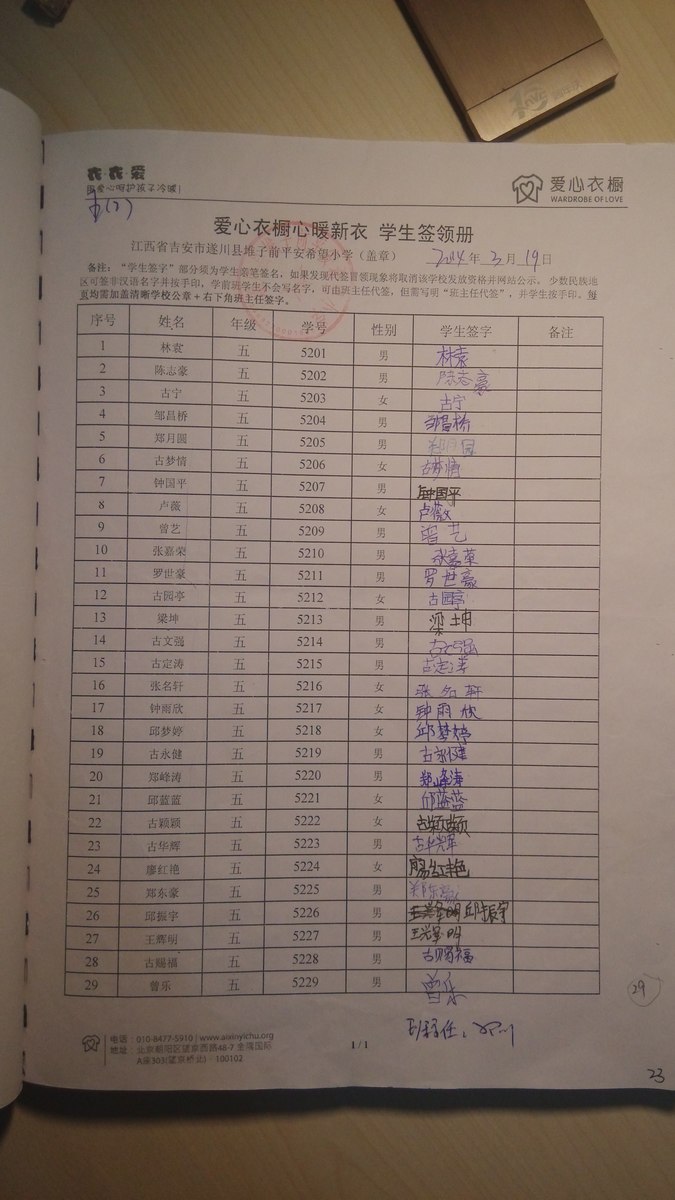 衣·衣·爱
用爱心呵护孩子冷暖!
爱心衣橱
WARDROBE OF LOVE
五(2)
爱心衣橱心暖新衣 学生签领册
江西省吉安市遂川县堆子前平安希望小学(盖章) 2014年3月19日
备注:“学生签字”部分须为学生亲笔签名,如果发现代签冒领现象将取消该学校发放资格并网站公示。少数民族地
区可签非汉语名字并按手印,学前班学生不会写名字,可由班主任代签,但需写明“班主任代签”,并学生按手印。每
页均需加盖清晰学校公章+右下角班主任签字。
序号 姓名 年级 学号 性别 学生签字 备注
1 林袁 五 5201 男 林袁
2 陈志豪 五 5202 男 陈志豪
3 古宁 五 5203 女 古宁
4 邹昌桥 五 5204 男 邹昌桥
5 郑月圆 五 5205 男 郑月园
6 古梦情 五 5206 女 古梦情
7 钟国平 五 5207 男 钟国平
8 卢薇 五 5208 女 卢薇
9 曾艺 五 5209 男 曾艺
10 张嘉荣 五 5210 男 张嘉荣
11 罗世豪 五 5211 男 罗世豪
12 古园亭 五 5212 女 古园亭
13 梁坤 五 5213 男 梁坤
14 古文强 五 5214 男 古文强
15 古定涛 五 5215 男 古定涛
16 张名轩 五 5216 女 张名轩
17 钟雨欣 五 5217 女 钟雨欣
18 邱梦婷 五 5218 女 邱梦婷
19 古永健 五 5219 男 古永健
20 郑峰涛 五 5220 男 郑峰涛
21 邱蓝蓝 五 5221 女 邱蓝蓝
22 古颖颖 五 5222 女 古颖颖
23 古华辉 五 5223 男 古华辉
24 廖红艳 五 5224 女 廖红艳
25 郑东豪 五 5225 男 郑东豪
26 邱振宇 五 5226 男 邱振宇
27 王辉明 五 5227 男 王辉明
28 古赐福 五 5228 男 古赐福
29 曾乐 五 5229 男 曾乐
29
班主任:
电话:010-8477-5910 | www.aixinyichu.org
地址:北京朝阳区望京西路48-7 金隅国际
A座303(望京桥北)·100102
1/1
23